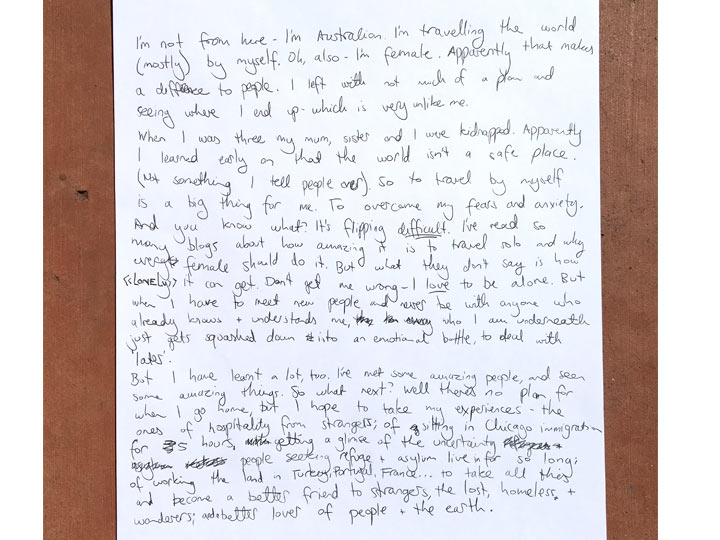 I'm not from here - I'm Australian. I'm travelling the world
(mostly) by myself. Oh, also - I'm female. Apparently that makes
a difference to people. I left with not much of a plan and
seeing where I end up - which is very unlike me.
When I was three my mum, sister and I were kidnapped. Apparently
I learned early on that the world isn't a safe place.
(Not something I tell people over). So to travel by myself
is a big thing for me. To overcome my fears and anxiety.
And you know what? It's flipping difficult. I've read so
many blogs about how amazing it is to travel solo and why
every female should do it. But what they don't say is how
<<LONELY>> it can get. Don't get me wrong - I love to be alone. But
when I have to meet new people and never be with anyone who
already knows + understands me, who I am underneath
just gets squashed down into an emotional bottle, to deal with
'later'.
But I have learnt a lot, too. I've met some amazing people, and seen
some amazing things. So what next? Well there's no plan for
when I go home, but I hope to take my experiences - the
ones of hospitality from strangers; of sitting in Chicago immigration
for 5 hours, getting a glimse of the uncertainty
people seeking refuge + asylum live in for so long;
of working the land in Turkey, Portugal, France... to take all this
and become a better friend to strangers, the lost, homeless, +
wanderers; and better lover of people + the earth.